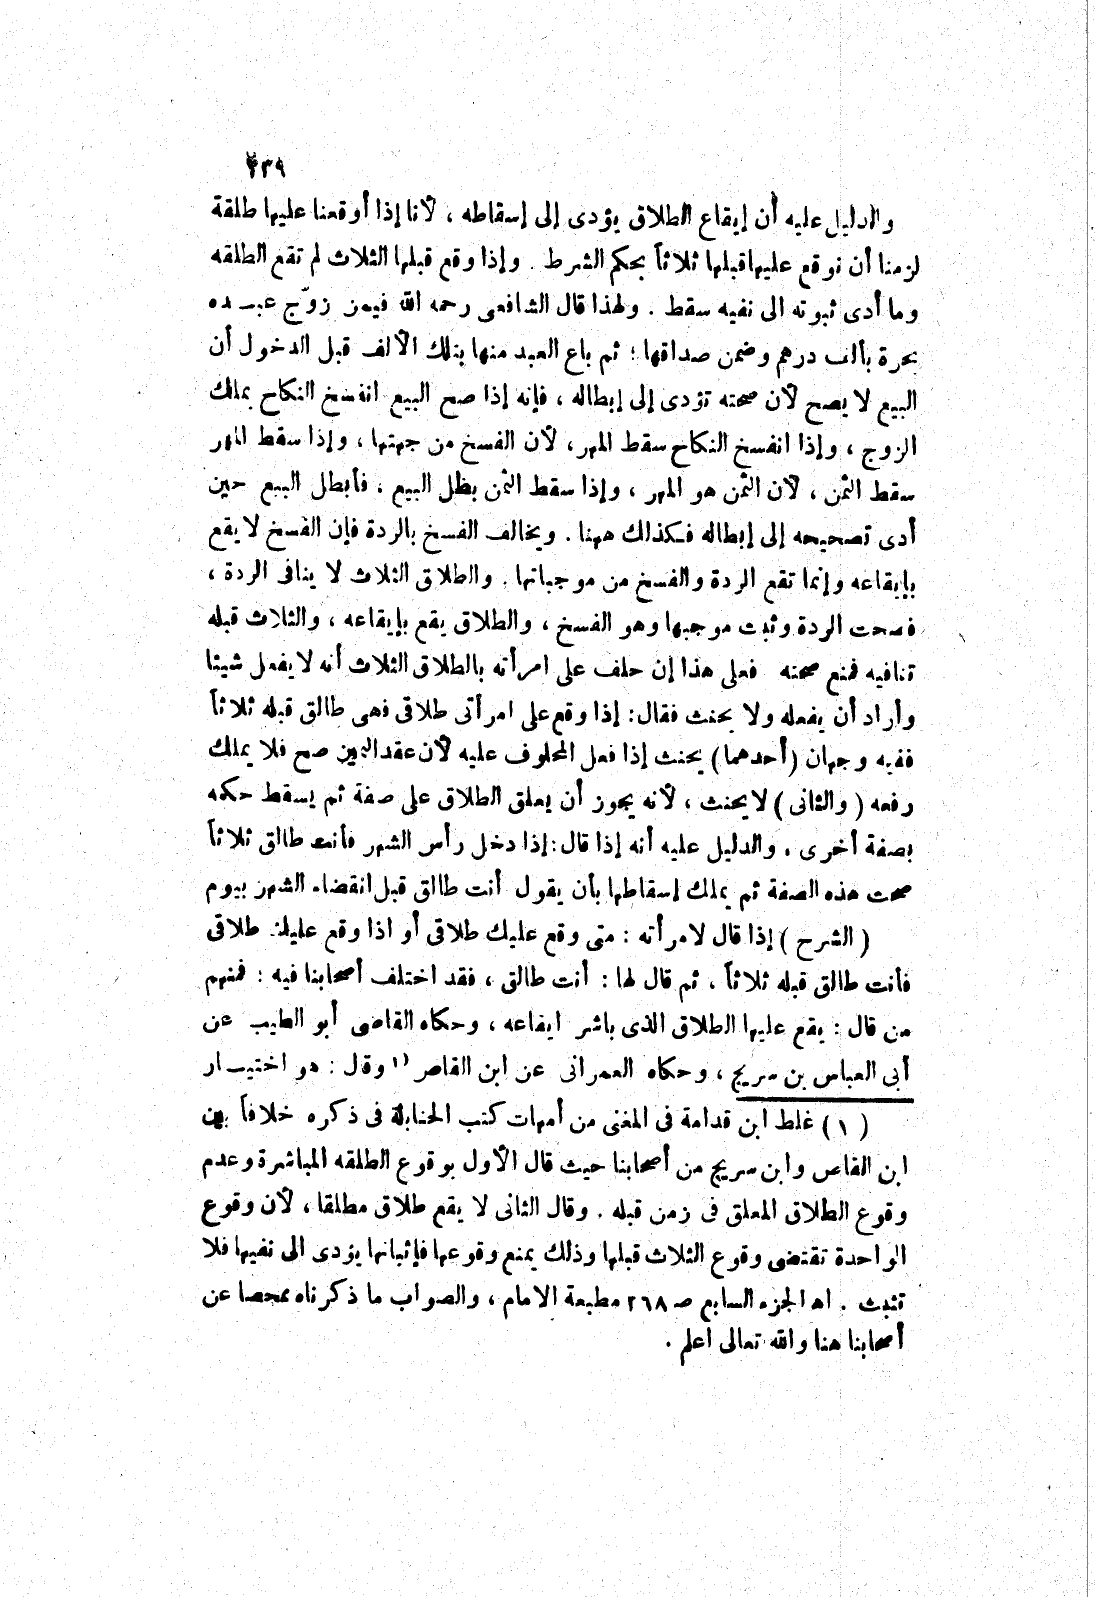 ٢٣٩
والدليل عليه أن إيقاع الطلاق يؤدى إلى إسقاطه ، لأنا إذا أوقعنا عليها طلقة
لزمنا أن نوقع عليها قبلها ثلاثاً بحكم الشرط . وإذا وقع قبلها الثلاث لم تقع الطلقه
وما أدى ثبوته الى نفيه سقط . ولهذا قال الشافعى رحمه الله فيمن زوّج عبده
بحرة بألف درهم وضمن صداقها ؛ ثم باع العبد منها بتلك الألف قبل الدخول أن
البيع لا يصح لأن صحته تؤدى إلى إبطاله ، فإنه إذا صح البيع انفسخ النكاح بملك
الزوج ، وإذا انفسخ النكاح سقط المهر، لأن الفسخ من جهتها ، وإذا سقط المهر
سقط الثمن ، لأن الثمن هو المهر ، وإذا سقط الثمن بطل البيع ، فأبطل البيع حين
أدى تصحيحه إلى إبطاله فكذلك ههنا . ويخالف الفسخ بالردة فإن الفسخ لا يقع
بإيقاعه وإنما تقع الردة والفسخ من موجباتها . والطلاق الثلاث لا ينافى الردة ،
فصحت الردة وثبت موجبها وهو الفسخ ، والطلاق يقع بإيقاعه ، والثلاث قبله
تنافيه فمنع صحته فعلى هذا إن حلف على امرأته بالطلاق الثلاث أنه لا يفعل شيئا
وأراد أن يفعله ولا يحنث فقال : إذا وقع على امرأتى طلاقى فهى طالق قبله ثلاثاً
ففيه وجهان (أحدهما) يحنث إذا فعل المحلوف عليه لأن عقد اليمين صح فلا يملك
رفعه ( والثانى ) لا يحنث ، لأنه يجوز أن يعلق الطلاق على صفة ثم يسقط حكمه
بصفة أخرى . والدليل عليه أنه إذا قال : إذا دخل رأس الشهر فأنت طالق ثلاثاً
صحت هذه الصفة ثم يملك إسقاطها بأن يقول أنت طالق قبل انقضاء الشهر بيوم
( الشرح ) إذا قال لامرأته : متى وقع عليك طلاقى أو اذا وقع عليك طلاقى
فأنت طالق قبله ثلاثاً ، ثم قال لها : أنت طالق ، فقد اختلف أصحابنا فيه : فمنهم
من قال : يقع عليها الطلاق الذى باشر ايقاعه ، وحكاه القاضى أبو الطيب عن
أبى العباس بن سريج ، وحكاه العمرانى عن ابن القاص (١ وقال : هو اختيار
( ١ ) غلط ابن قدامة فى المغنى من أمهات كتب الحنابلة فى ذكره خلافاً بين
ابن القاص وابن سريج من أصحابنا حيث قال الأول بوقوع الطلقه المباشرة وعدم
وقوع الطلاق المعلق فى زمن قبله . وقال الثانى لا يقع طلاق مطلقا ، لأن وقوع
الواحدة تقتضى وقوع الثلاث قبلها وذلك يمنع وقوعها فإثباتها يؤدى الى نفيها فلا
تثبت . اه الجزء السابع صـ ٢٦٨ مطبعة الامام ، والصواب ما ذكرناه ممحصا عن
أصحابنا هنا والله تعالى اعلم .